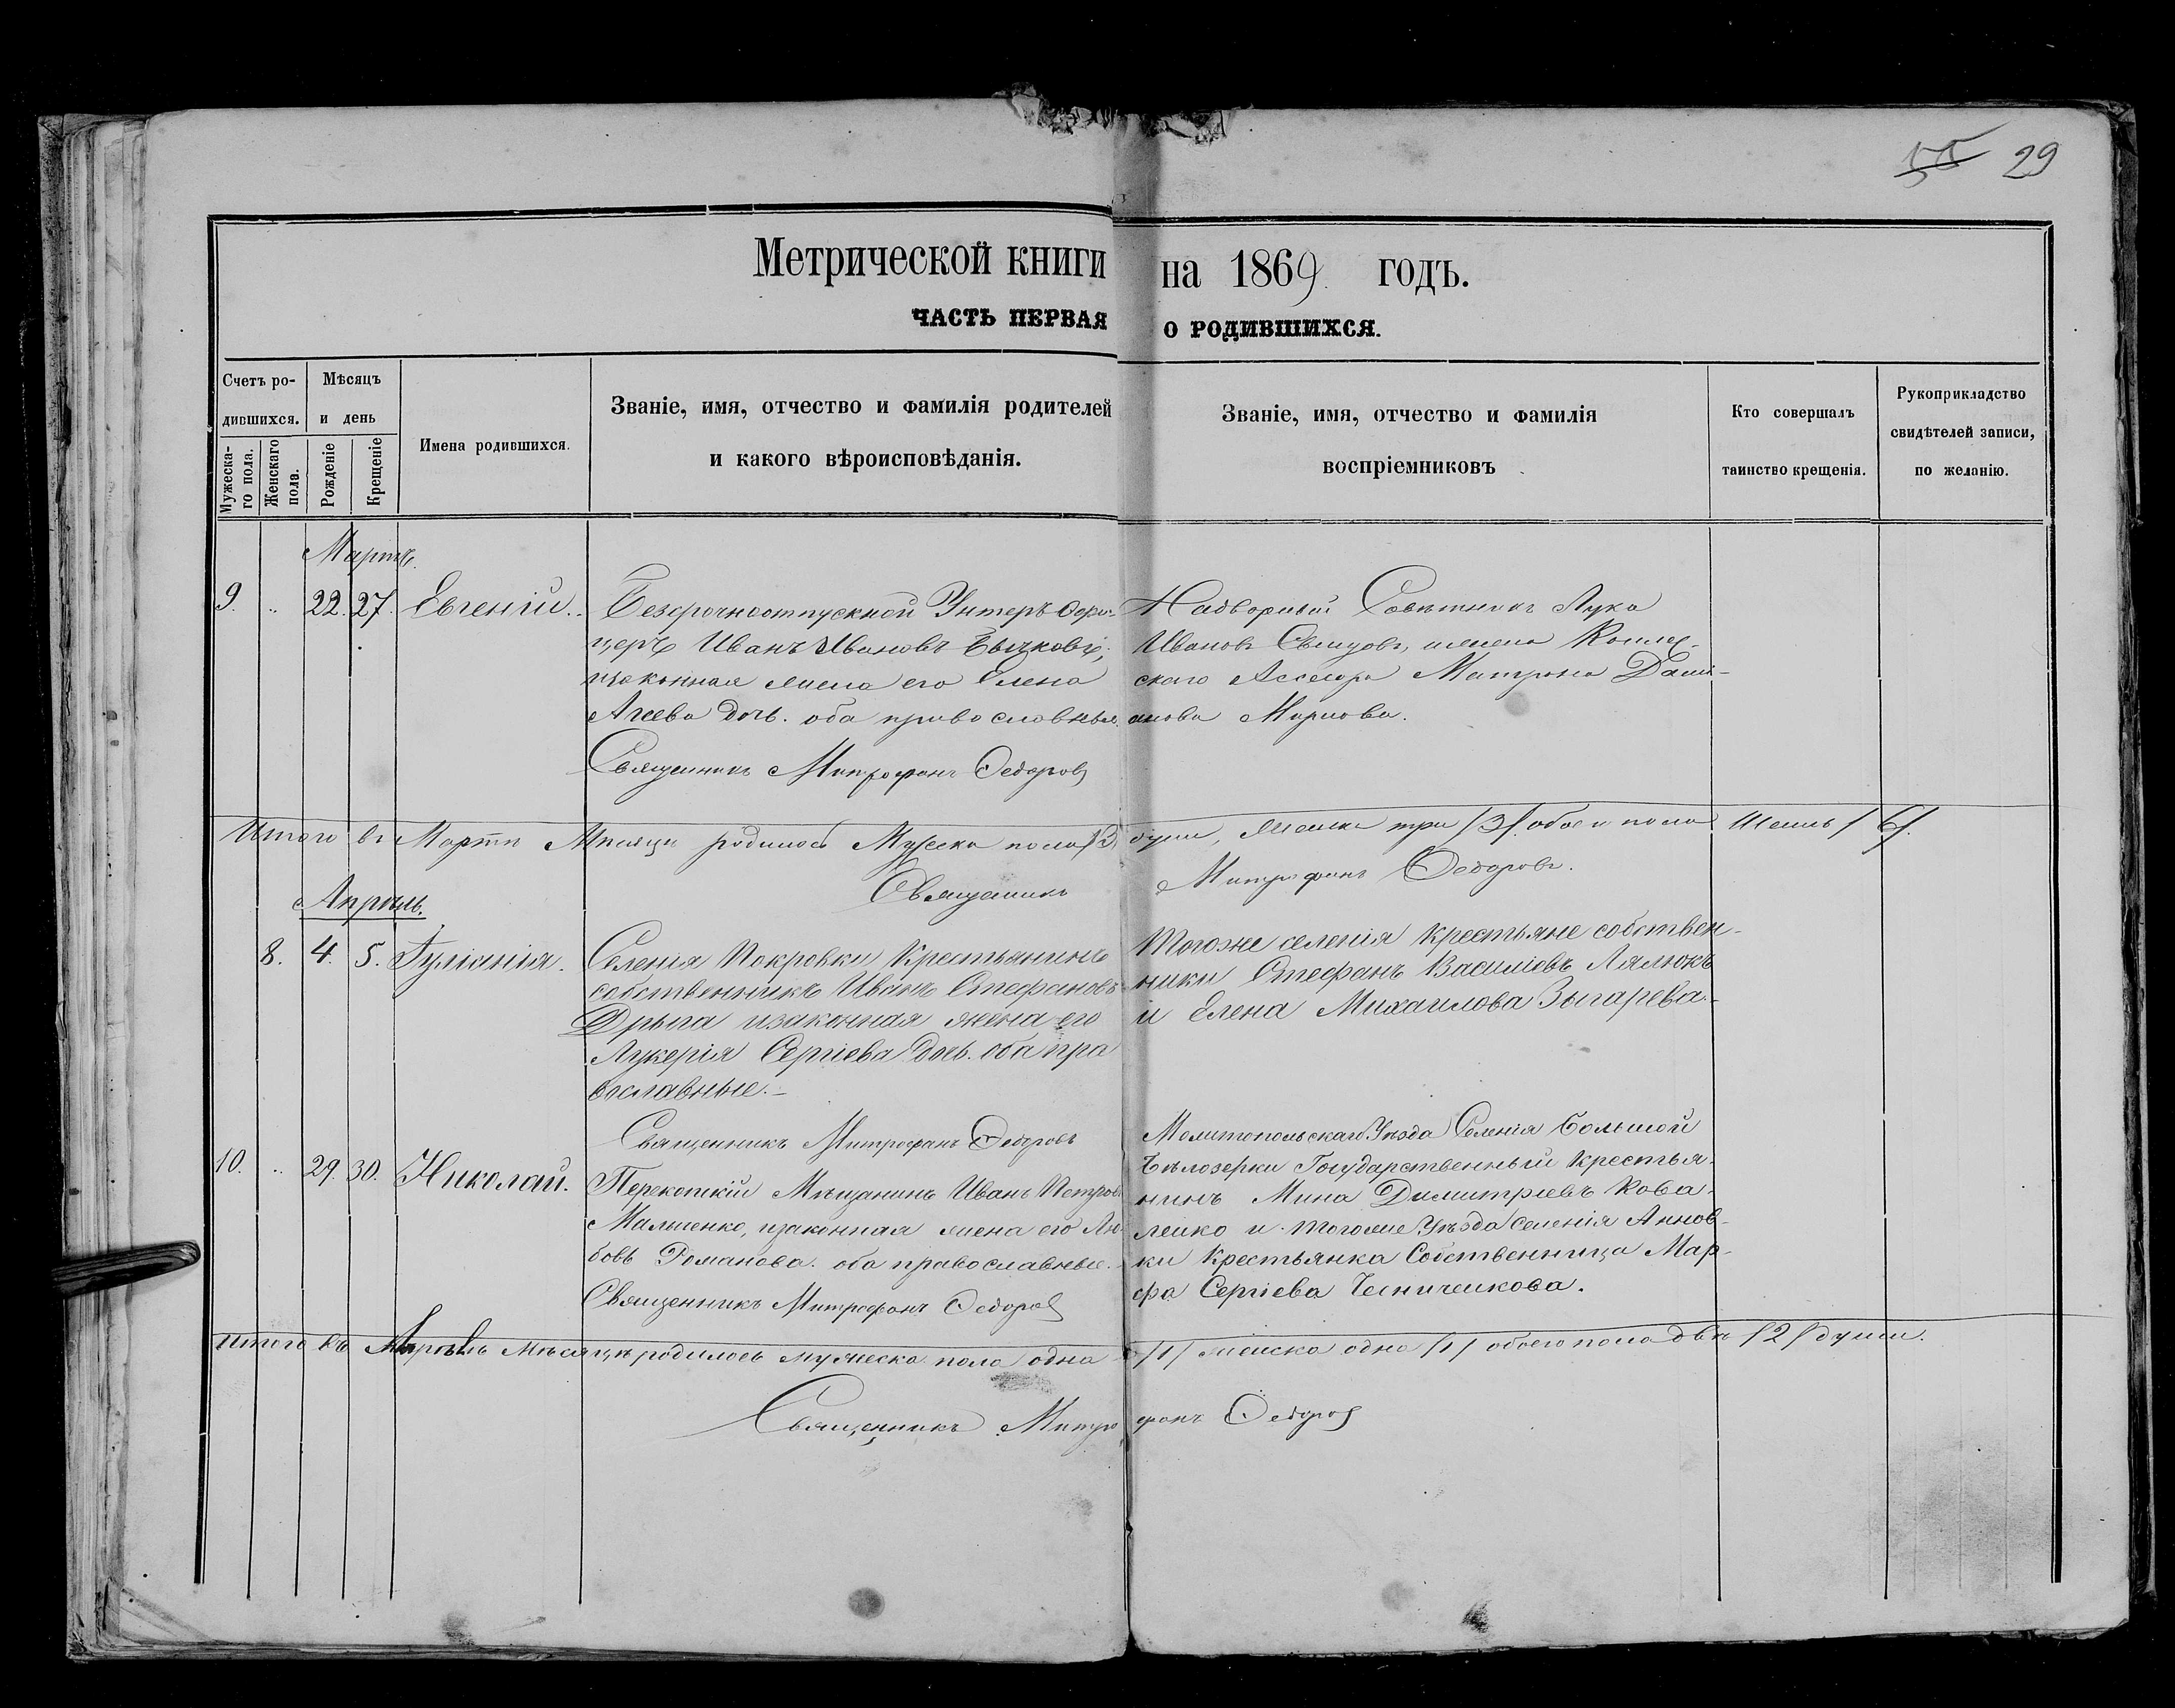 29
Метрической книги на 1869 годъ.
ЧАСТЬ ПЕРВАЯ О РОДИВШИХСЯ.
Счетъ ро-
дившихся.
Мужеска-
го пола.
Женскаго
пола.
Мѣсяцъ
и день
Рожденіе
Крещеніе
Имена родившихся.
Званіе, имя, отчество и фамилія родителей
и какого вѣроисповѣданія.
Званіе, имя, отчество и фамилія
воспріемниковъ
Кто совершалъ
таинство крещенія.
Рукоприкладство
свидѣтелей записи,
по желанію.
Мартъ.
9. 22. 27. Евгеній.
Безсрочноотпускной Унтеръ Офи-
церъ Иванъ Ивановъ Бычковъ,
изаконная жена его Елена
Агеева дочь. оба православныя.
Священникъ Митрофанъ Федоровъ
Надворный Совѣтникъ Лука
Ивановъ, ижена Коллеж-
скаго Ассесора Матрона Дами-
анова
Итого въ Мартѣ Мѣсяцѣ родилось Мужеска пола /3/ души, Женска три /3/. обоего пола Шесть /6/.
Священникъ Митрофанъ Федоровъ.
Апрѣль.
8. 4. 5. Іуліанія.
Селенія Покровки Крестьянинъ
собственникъ Иванъ Стефановъ
Дрыга изаконная жена его
Лукерія Сергіева дочь. оба пра
вославные.-
Священникъ Митрофанъ Федоровъ
Тогоже селенія крестьяне собствен-
ники Стефанъ Василіевъ Лялюкъ
и Елена Михаилова Зыгарева.-
10. 29. 30. Николай.
Перекопскій Мѣщанинъ Иванъ Петровъ
Мальченко, изаконная жена его Лю-
бовь Романова. оба православные.
Священникъ Митрофанъ Федоровъ
Мелитопольскаго Уѣзда Селенія Большой
Бѣлозерки Государственный крестья-
нинъ Мина Димитріевъ Кова-
ленко и тогоже Уѣзда селенія Аннов-
ки Крестьянка Собственница Мар-
фа Сергіева Чесниченкова.
Итого въ Апрѣлѣ Мѣсяцѣ родилось мужеска пола одна /1/ женска одна /1/ обоего пола двѣ /2/ души.
Священникъ Митрофанъ Федоровъ